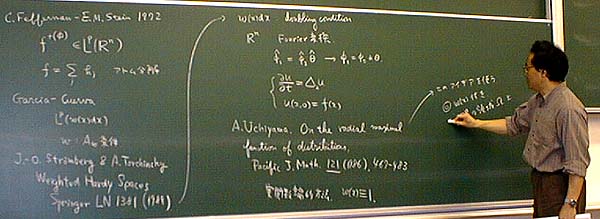 C. Fefferman - E.M. Stein 1972
f⁺⁽ᶲ⁾ ∈ Lᵖ(Rⁿ)
f = Σ fᵢ, アトム分解
Garcia-Cuerva
Lᵖ(w(x)dx)
w : A∞条件
J.-O. Strömberg & A. Torchinsky
Weighted Hardy Spaces
Springer LN 1381 (1989)
w(x)dx doubling condition
Rⁿ Fourier変換
φ̂₁ = φ̂₂ θ̂ → φ₁ = φ₂ * θ
∂u/∂t = Δₓu
u(x,0) = f(x)
A. Uchiyama. On the radial maximal
function of distributions.
Pacific J. Math. 121 (1986), 467-483
実関数論的方法. w(x)≡1.
このアイデアを使う
① w(x) 付き